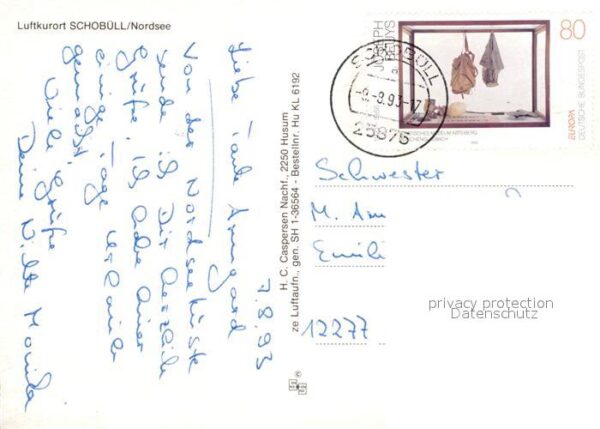 Luftkurort SCHOBÜLL/Nordsee
7.8.93
Liebe Tante Annegard
Von der Nordseeküste
sende ich Dir herzliche
Grüße. Ich habe hier
einige Tage Urlaub
gemacht.
Viele Grüße
Deine
H. C. Caspersen Nachf., 2250 Husum
ze Luftaufn., gen. SH 1-36564 - Bestellnr. Hu KL 6192
JOSEPH BEUYS
80
EUROPA
DEUTSCHE BUNDESPOST
SCHOBÜLL
-9.-8.93-17
25875
Schwester
M. Am
Emili
12277
privacy protection
Datenschutz